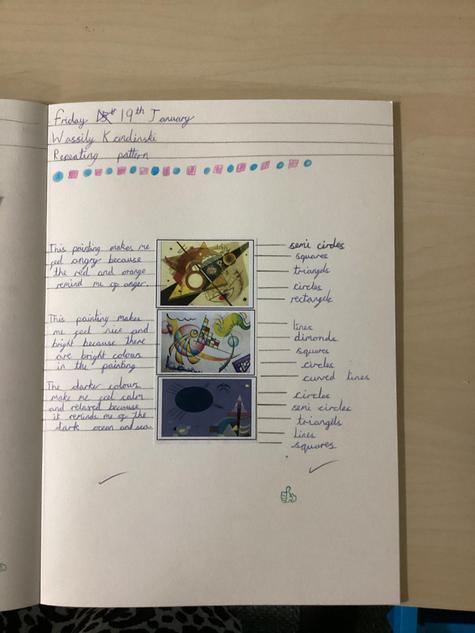 Friday 19th January
Wassily Kandinski
Repeating pattern
This painting makes me
feel angry because
the red and orange
remind me of anger.
semi circles
squares
triangels
circles
rectangels
This painting makes
me feel nice and
bright because there
are bright colours
in the painting
lines
dimonds
squares
circles
curved lines
The darker colours
make me feel calm
and relaxed because
it reminds me of the
dark ocean and sea.
circles
semi circles
triangels
lines
squares